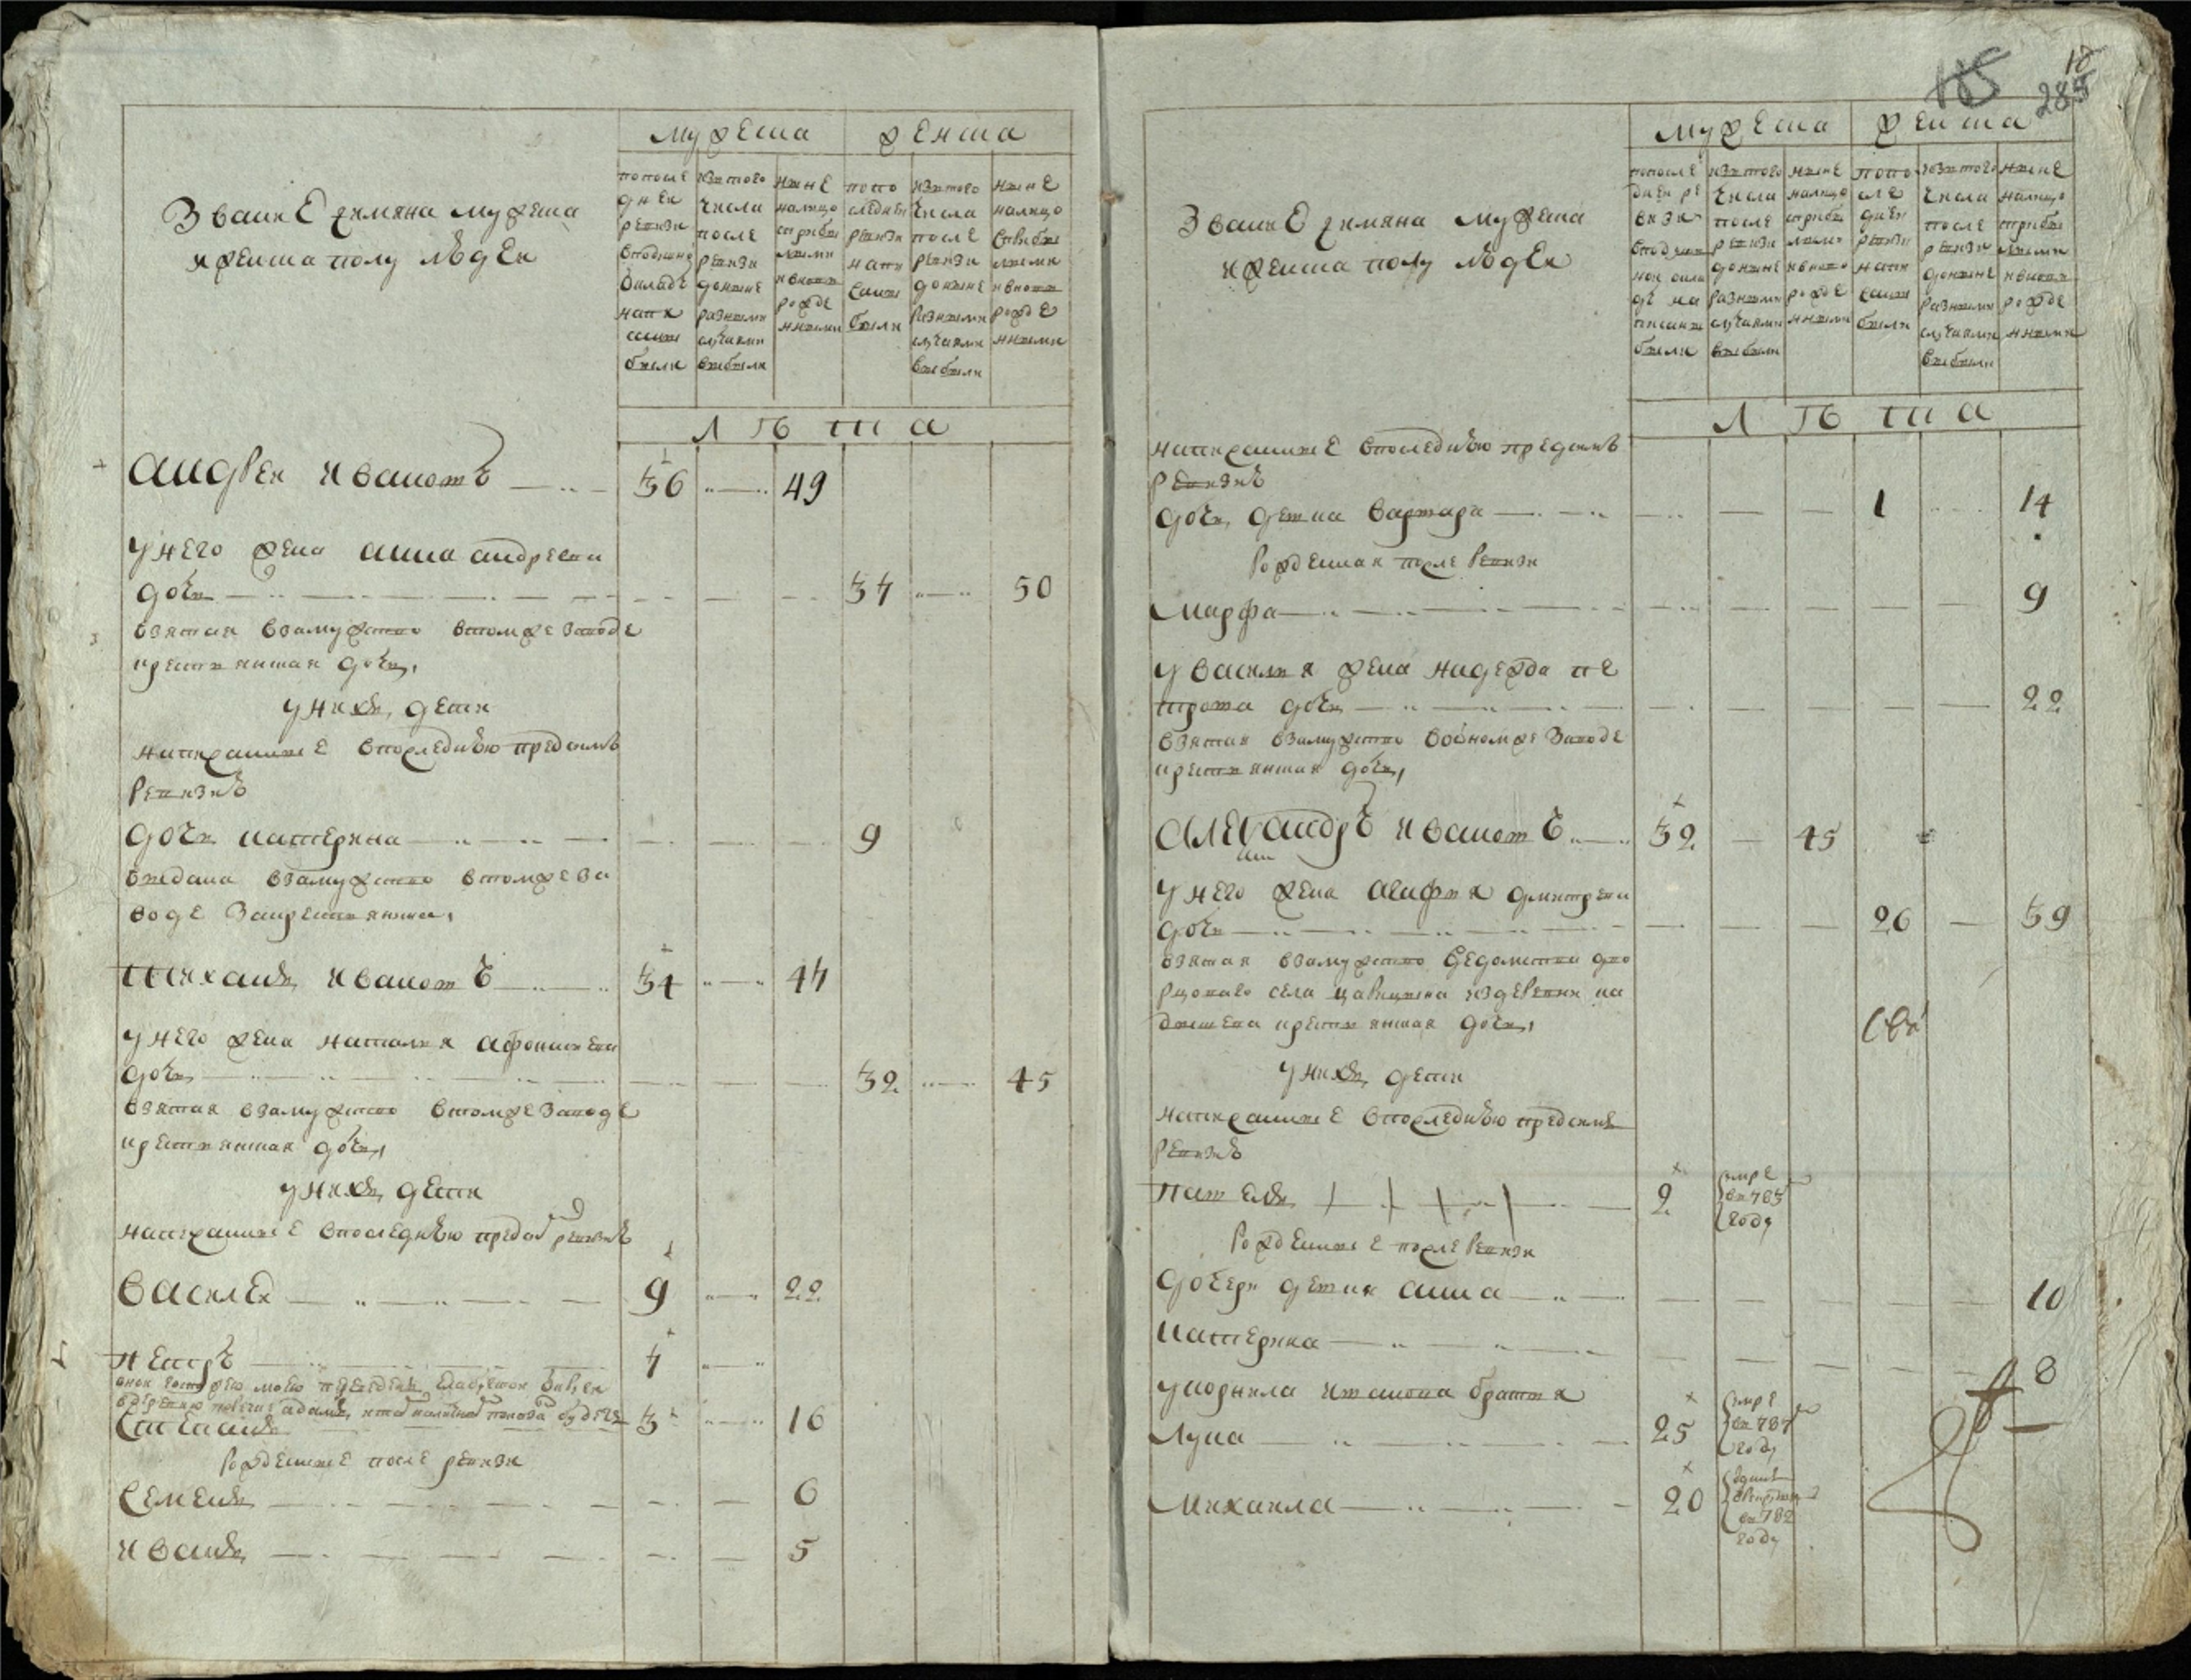 Звание и имяна мужеска
и женска полу людеи
мужеска
женска
по после
днеи
ревизи
в подушно
окладе
напи
саны
были
из того
числа
после
ревизи
до ныне
разными
случаями
выбыли
ныне
налицо
с прибы
лыми
и вновь
рожде
нными
по по
следнеи
ревизи
напи
саны
были
из того
числа
после
ревизи
до ныне
разными
случаями
выбыли
ныне
налицо
с прибы
лыми
и вновь
рожде
нными
лѣта
Андреи Ивановъ 36 49
у него жена Анна Андреева
дочь 37 50
взятая в замужство в том же заводе
крестьянская дочь
у них дети
написанные в последнюю пред симъ
ревизиѣ
дочь Катерина 9
выдана в замужство в том же за
воде за крестьянина
Тихан Ивановъ 34 47
у него жена Наталия Афонасиева
дочь 32 45
взятая в замужство в том же заводе
крестьянская дочь
у них дети
написанные в последнюю пред сим ревизиѣ
Василеи 9 22
Петръ 7
Степан 3 16
рожденные после ревизи
Семен 6
Иван 5
18
285
Звание и имяна мужеска
и женска полу людеи
мужеска
женска
по после
днеи ре
визи
в подуш
ном окла
де на
писаны
были
из того
числа
после
ревизи
до ныне
разными
случаями
выбыли
ныне
налицо
с прибы
лыми
и вновь
рожде
нными
по по
сле
днеи
ревизи
напи
саны
были
из того
числа
после
ревизи
до ныне
разными
случаями
выбыли
ныне
налицо
с прибы
лыми
и вновь
рожде
нными
лѣта
написанные в последнюю пред симъ
ревизиѣ
дочь девка Варвара 1 14
рожденная после ревизи
Марфа 9
у Василия жена Надежда Пе
трова дочь 22
взятая в замужство во оном же заводе
крестьянская дочь
Александръ Ивановъ 32 45
у него жена Агафия Дмитрева
дочь 26 39
взятая в замужство ведомства дво
рцоваго села Царицына из деревни Ка
дышева крестьянская дочь
у них дети
написанные в последнюю пред сим
ревизиѣ
Павел 2 умре в 785 году
рожденные после ревизи
дочери девки Анна 10
Катерина 8
у Корнила Иванова братья
Лука 25 умре в 787 году
Михаила 20 отдан в рекруты в 782 году